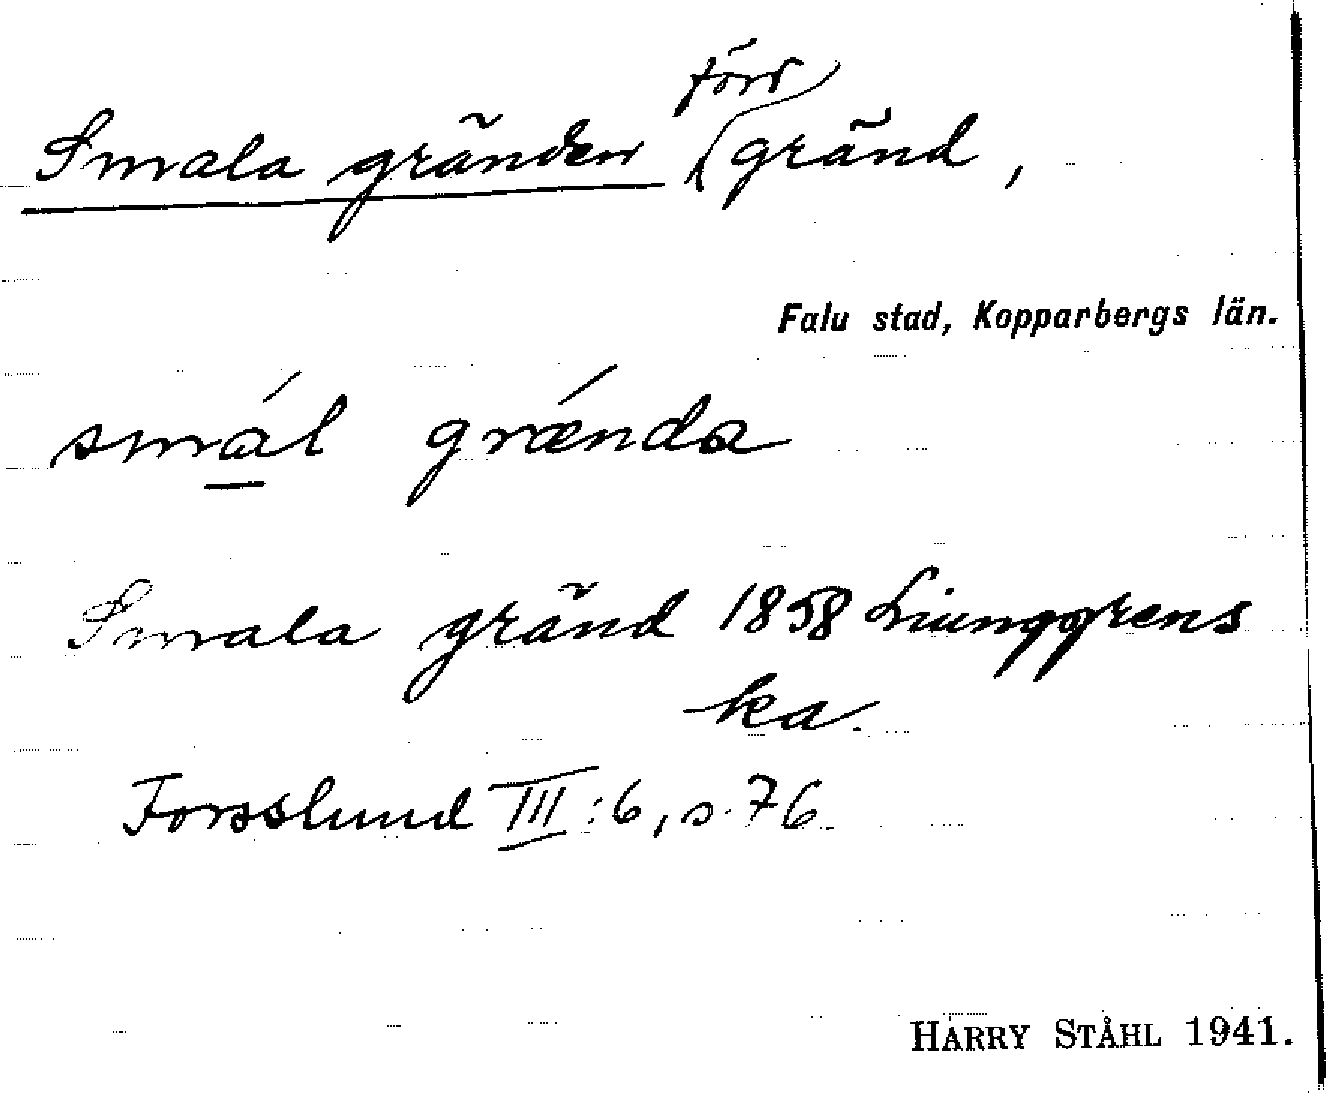 Smala gränden förr gränd,
Falu stad, Kopparbergs län.
smál grǽnda
Smala gränd 1858 Liunggrens
ka.
Forsslund III:6, s. 76
HARRY STÅHL 1941.